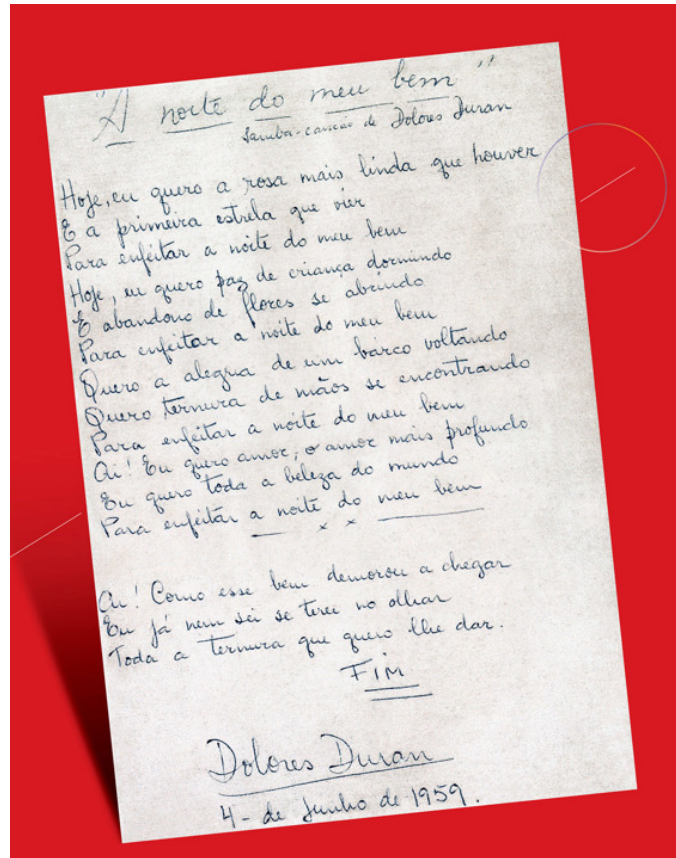 "A noite do meu bem"
Samba-canção de Dolores Duran
Hoje, eu quero a rosa mais linda que houver
E a primeira estrela que vier
Para enfeitar a noite do meu bem
Hoje, eu quero paz de criança dormindo
E abandono de flores se abrindo
Para enfeitar a noite do meu bem
Quero a alegria de um barco voltando
Quero ternura de mãos se encontrando
Para enfeitar a noite do meu bem
Ai! Eu quero amor, o amor mais profundo
Eu quero toda a beleza do mundo
Para enfeitar a noite do meu bem
Ai! Como esse bem demorou a chegar
Eu já nem sei se terei no olhar
Toda a ternura que quero lhe dar.
FIM
Dolores Duran
4 - de Junho de 1959.